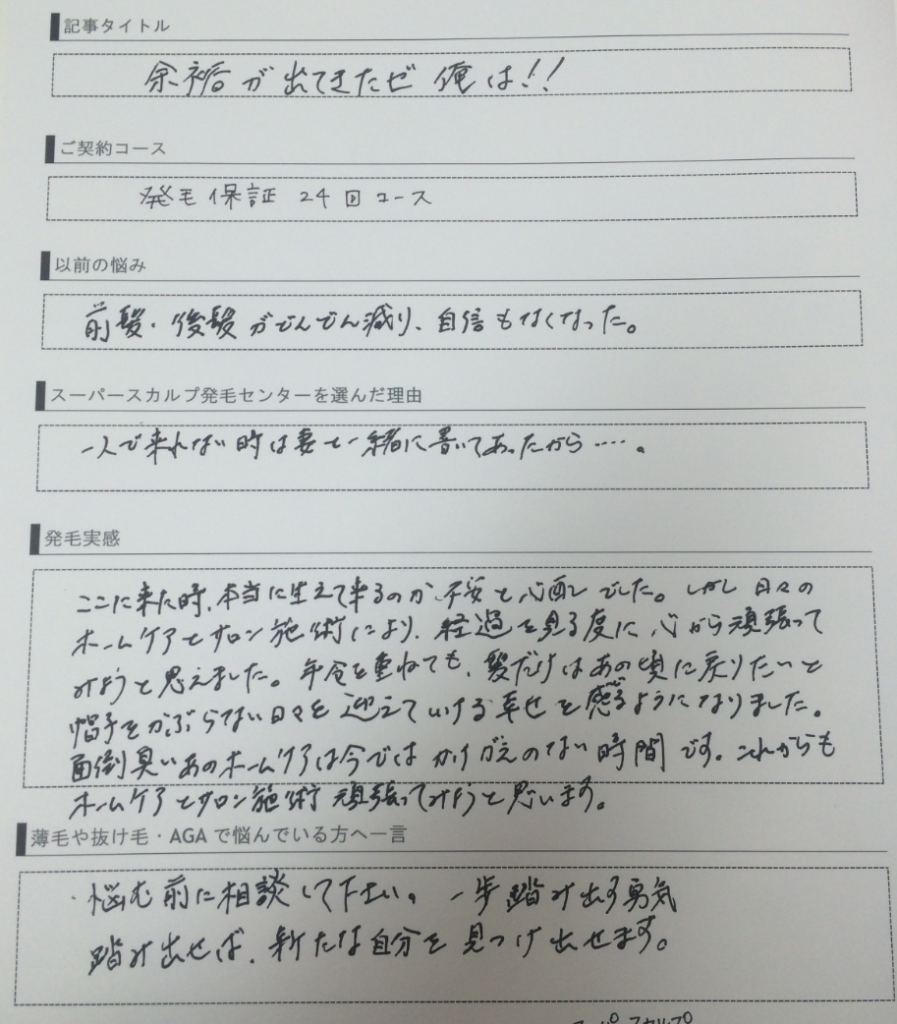 記事タイトル
余裕が出てきたゼ 俺は!!
ご契約コース
発毛保証 24回コース
以前の悩み
前髪・後髪がどんどん減り、自信もなくなった。
スーパースカルプ発毛センターを選んだ理由
一人で来れない時は妻と一緒に書いてあったから‥‥。
発毛実感
ここに来た時、本当に生えて来るのか、不安と心配でした。しかし日々の
ホームケアとサロン施術により、経過を見る度に、心から頑張って
みようと思えました。年令を重ねても、髪だけはあの頃に戻りたいと
帽子をかぶらない日々を迎えていける幸せを感るようになりました。
面倒臭いあのホームケアは今ではかけがえのない時間です。これからも
ホームケアとサロン施術頑張ってみようと思います。
薄毛や抜け毛・AGAで悩んでいる方へ一言
・悩む前に相談して下さい。一歩踏み出す勇気
踏み出せば、新たな自分を見つけ出せます。